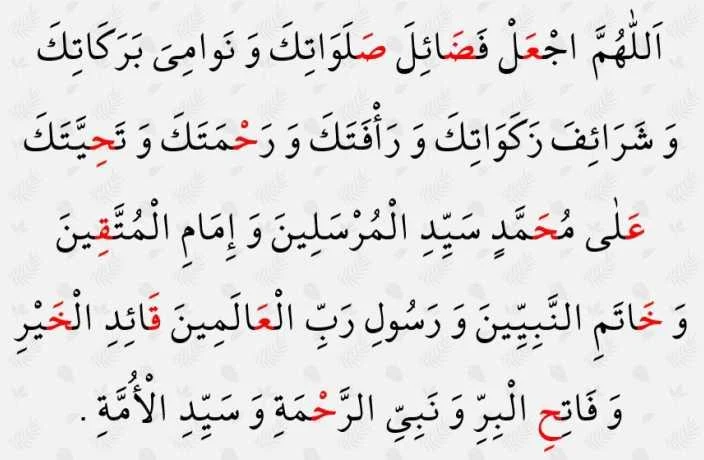 اَللّٰهُمَّ اجْعَلْ فَضَائِلَ صَلَوَاتِكَ وَ نَوامِىَ بَرَكَاتِكَ
وَ شَرَائِفَ زَكَوَاتِكَ وَ رَأْفَتَكَ وَ رَحْمَتَكَ وَ تَحِيَّتَكَ
عَلٰى مُحَمَّدٍ سَيِّدِ الْمُرْسَلِينَ وَ إِمَامِ الْمُتَّقِينَ
وَ خَاتَمِ النَّبِيِّينَ وَ رَسُولِ رَبِّ الْعَالَمِينَ قَائِدِ الْخَيْرِ
وَ فَاتِحِ الْبِرِّ وَ نَبِىِّ الرَّحْمَةِ وَ سَيِّدِ الْأُمَّةِ .